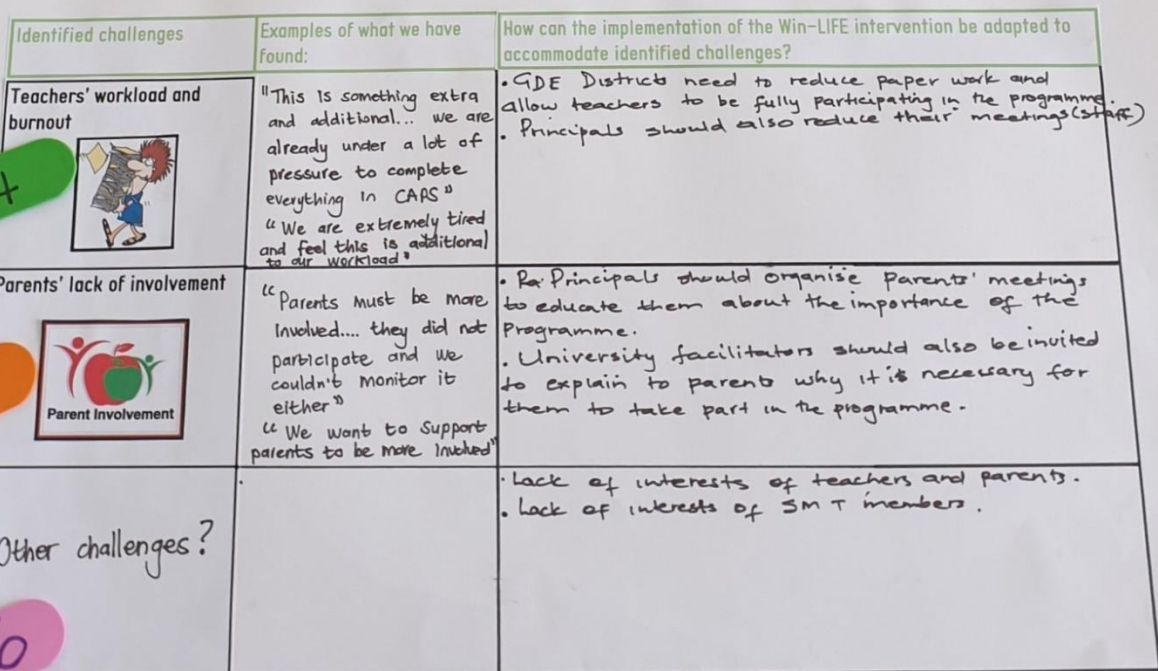 Identified challenges
Examples of what we have
found:
How can the implementation of the Win-LIFE intervention be adapted to
accommodate identified challenges?
Teachers' workload and
burnout
"This is something extra
and additional... we are
already under a lot of
pressure to complete
everything in CAPS"
"We are extremely tired
and feel this is additional
to our workload"
• GDE Districts need to reduce paper work and
allow teachers to be fully participating in the programme.
• Principals should also reduce their meetings (staff)
Parents' lack of involvement
Parent Involvement
"Parents must be more
involved.... they did not
participate and we
couldn't monitor it
either"
"We want to support
parents to be more involved"
• Pa Principals should organise Parents' meetings
to educate them about the importance of the
Programme.
• University facilitators should also be invited
to explain to parents why it is necessary for
them to take part in the programme.
Other challenges?
• Lack of interests of teachers and parents.
• Lack of interests of SMT members.